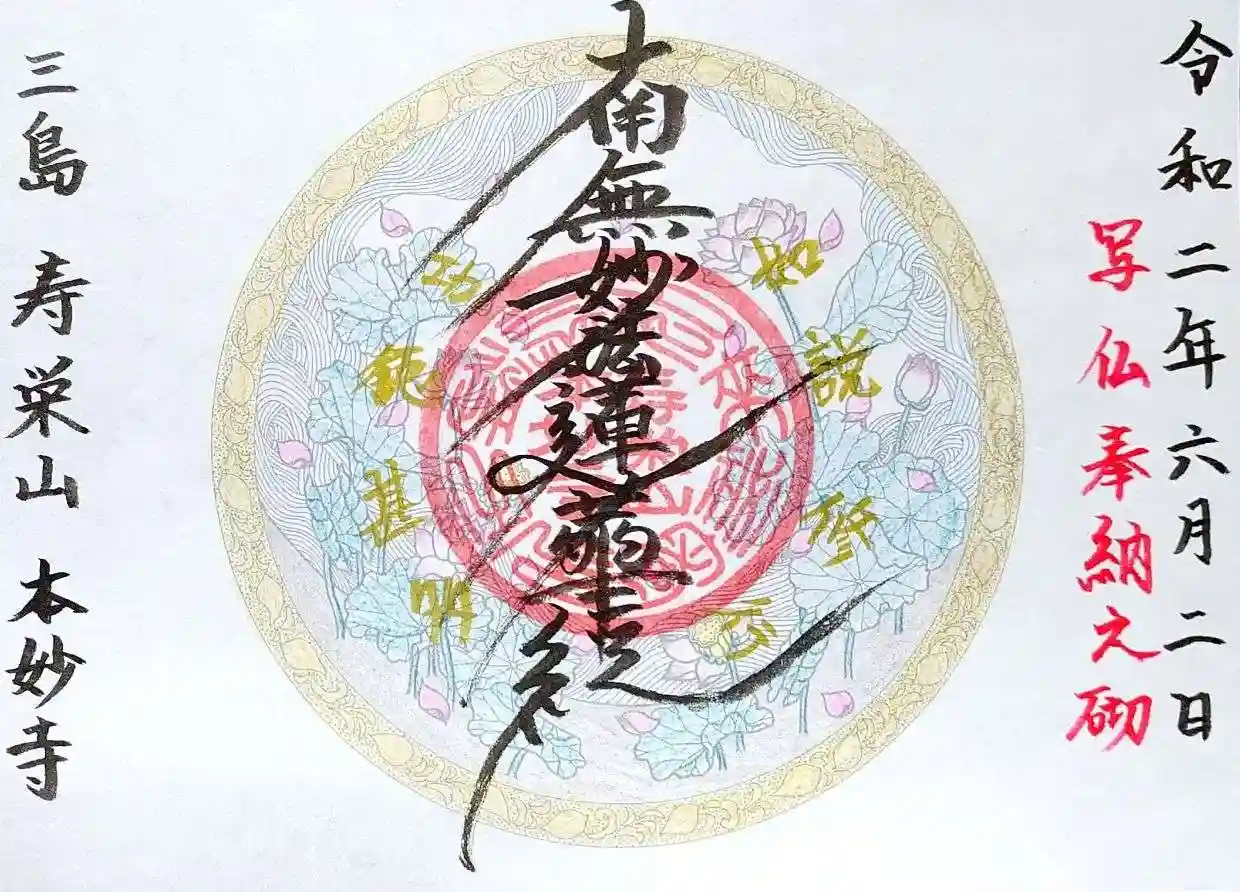 令和二年六月二日
写仏奉納之砌
南無妙法蓮華経
如説修行
功徳甚多
三島 寿栄山 本妙寺